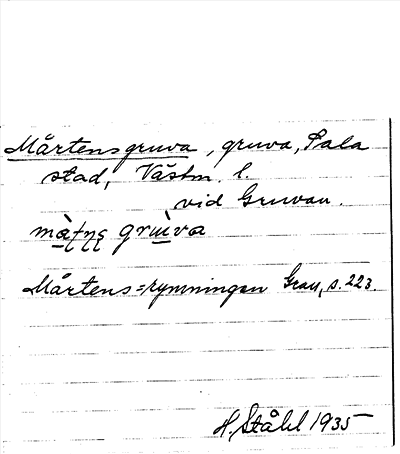 Mårtensgruva, gruva, Sala
stad, Västm. l.
vid Gruvan.
gruva
Mårtens=rymningen Gran, s. 223.
H. Ståhl 1935